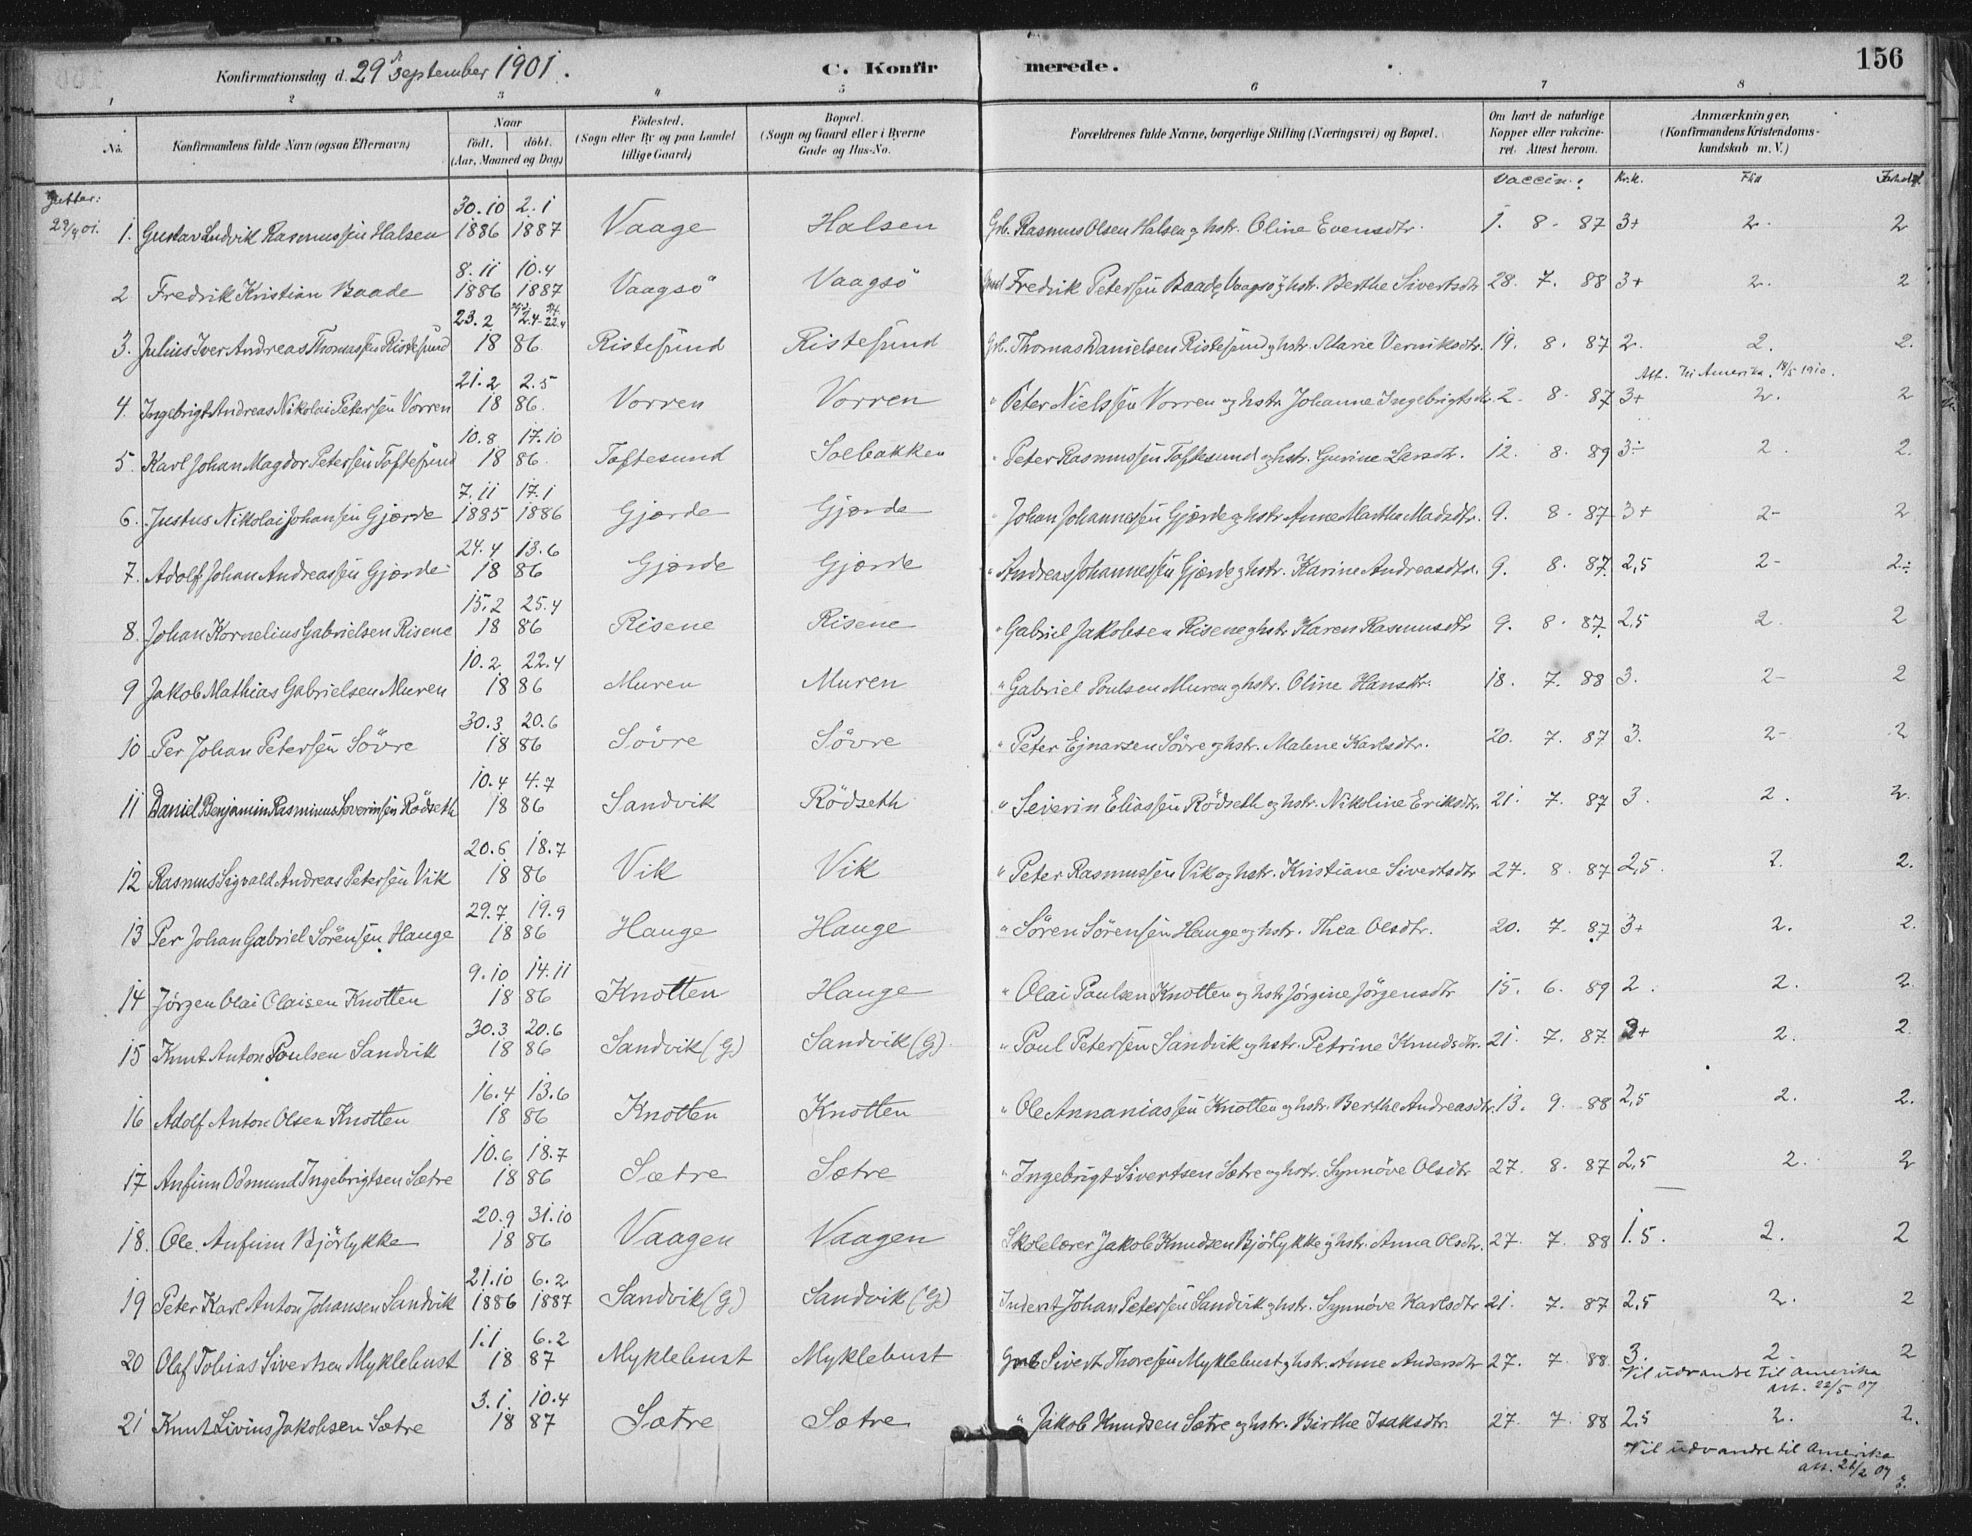 Konfirmationsdag d. 29 September 1901. C. Konfirmerede. 156
1 2 3 4 5 6 7 8
No. Konfirmandens fulde Navn (ogsaa Efternavn) Naar födt. döbt. (Aar, Maaned og Dag) Födested. (Sogn eller By og paa Landet tillige Gaard) Bopæl. (Sogn og Gaard eller i Byerne Gade og Hus-No. Forældrenes fulde Navne, borgerlige Stilling (Næringsvei) og Bopæl. Om havt de naturlige Kopper eller vaccineret. Attest herom. Anmærkninger, (Konfirmandens Kristendomskundskab m. V.)
Gutter: Vaccin.: Kr.k. Flid Forhold
29/9 01.
1. Gustav Ludvik Rasmussen Halsen 30.10 1886 2.1 1887 Vaage Halsen Grb. Rasmus Olsen Halsen og hstr. Oline Evensdtr. 1. 8. 87 3+ 2. 2
2 Fredrik Kristian Baade 8.11 1886 10.4 1887 Vaagsö Vaagsö Fredrik Petersen Baade, Vaagsö og hstr. Berthe Sivertsdtr 28. 7. 88 3+ 2. 2
3. Julius Iver Andreas Thomassen Ristesund 23.2 2.4-22.4 1886 Ristesund Ristesund Grb. Thomas Danielsen Ristesund og hstr. Marie Verniksdtr. 19. 8. 87 2. 2. 2.
Att. til Amerika 14/5 1910.
4. Ingebrigt Andreas Nikolai Petersen Vorren 21.2 2.5 1886. Vorren Vorren " Peter Nielssen Vorren og hstr. Johanne Ingebrigtsdtr. 2. 8. 87 3+ 2. 2
5. Karl Johan Magdor Petersen Toftesund 10.8 17.10 1886. Toftesund Solbakken " Peter Rasmussen Toftesund og hstr. Gurine Larsdtr. 12. 8. 89 3÷ 2. 2.
6. Justus Nikolai Johansen Gjærde 7.11 1885 17.1 1886 Gjærde Gjærde " Johan Johannessen Gjærde og hstr. Anne Martha Madsdtr. 9. 8. 87 3+ 2- 2
7. Adolf Johan Andreassen Gjærde 24.4 13.6 1886 Gjærde Gjærde " Andreas Johannessen Gjærde og hstr. Karine Andreasdtr. 9. 8. 87. 2,5 2- 2÷
8. Johan Kornelius Gabrielsen Risene 15.2 25.4 1886 Risene Risene " Gabriel Jakobsen Risene og hstr. Karen Rasmusdtr 9. 8. 87. 2,5 2. 2
9 Jakob Mathias Gabrielsen Muren 10.2 22.4 1886 Muren Muren " Gabriel Poulsen Muren og hstr. Oline Hansdtr. 18. 7. 88 3. 2- 2
10 Per Johan Petersen Søvre 30.3 20.6 1886 Søvre Søvre " Peter Ejnarsen Søvre og hstr. Malene Karlsdtr. 20. 7. 87 3. 2- 2
11 Daniel Benjamin Rasminus Severinsen Rödseth 10.4 4.7 1886 Sandvik Rödseth " Severin Eliassen Rödseth og hstr. Nikoline Eriksdtr. 21. 7. 87 3. 2. 2.
12 Rasmus Sigvald Andreas Petersen Vik 20.6 18.7 1886 Vik Vik " Peter Rasmussen Vik og hstr. Kristiane Sivertsdtr 27. 8. 87 2,5. 2. 2.
13 Per Johan Gabriel Sörensen Hauge 29.7 19.9 1886 Hauge Hauge " Sören Sörensen Hauge og hstr. Thea Olsdtr. 20. 7. 87 3+ 2. 2.
14 Jörgen Olai Olaisen Knotten 9.10 14.11 1886 Knotten Hauge " Olai Poulsen Knotten og hstr. Jörgine Jörgensdtr 15. 6. 89 2. 2. 2.
15 Knut Anton Poulsen Sandvik 30.3 20.6 1886 Sandvik (G) Sandvik (G). " Poul Petersen Sandvik og hstr. Petrine Knudsdtr. 21. 7. 87 3+ 2. 2.
16 Adolf Anton Olsen Knotten 16.4 13.6 1886 Knotten Knotten " Ole Annaniassen Knotten og hstr. Berthe Andreasdtr. 13. 9. 88 2,5 2. 2.
17 Anfinn Odmund Ingebrigtsen Sætre 10.6 18.7 1886 Sætre Sætre " Ingebrigt Sivertsen Sætre og hstr. Synnöve Olsdtr 27. 8. 87 2,5 2. 2
18. Ole Anfinn Björlykke 20.9 31.10 1886 Vaagen Vaagen Skolelærer Jakob Knudsen Björlykke og hstr. Anna Olsdtr. 27. 7. 88 1.5. 2. 2
19 Peter Karl Anton Johansen Sandvik 21.10 1886 6.2 1887 Sandvik (G) Sandvik (G) Inderst Johan Petersen Sandvik og hstr. Synnöve Karlsdtr 21. 7. 87 2,5 2. 2
20 Olaf Tobias Sivertsen Myklebust 1.1. 6.2 1887 Myklebust Myklebust Grb Sivert Thoresen Myklebust og hstr. Anne Andersdtr 27. 7. 88. 3. 2. 2
Vil udvandre til Amerika
att. 22/5 07
21 Knut Livius Jakobsen Sætre 3.1. 10.4 1887 Sætre Sætre " Jakob Knudsen Sætre og hstr. Birthe Isaksdtr. 27. 7. 88 2,5 2. 2.
Vil udvandre til Amerika
att. 26/2 07